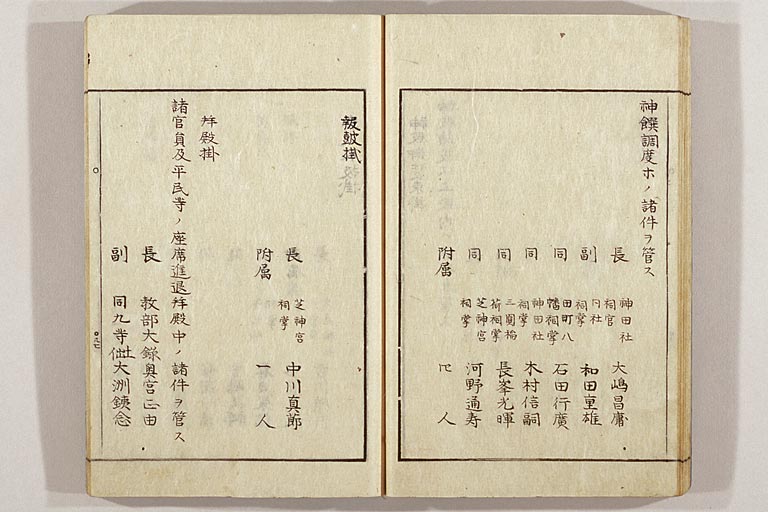 神饌調度ホノ諸件ヲ管ス
長 神田社祠官 大嶋昌庸
副 同社祠掌 和田重雄
同 田町八幡祠掌 石田行廣
同 神田社祠掌 木村信嗣
同 三圍稲荷祠掌 長峯光暉
同 芝神宮祠掌 河野通寿
附属 四人
報鼓掛
長 芝神宮祠掌 中川真節
附属 一人
拜殿掛
諸官員及平民等ノ座席進退拜殿中ノ諸件ヲ管ス
長 教部大録奥宮正由
副 同九等出仕大洲鉄念